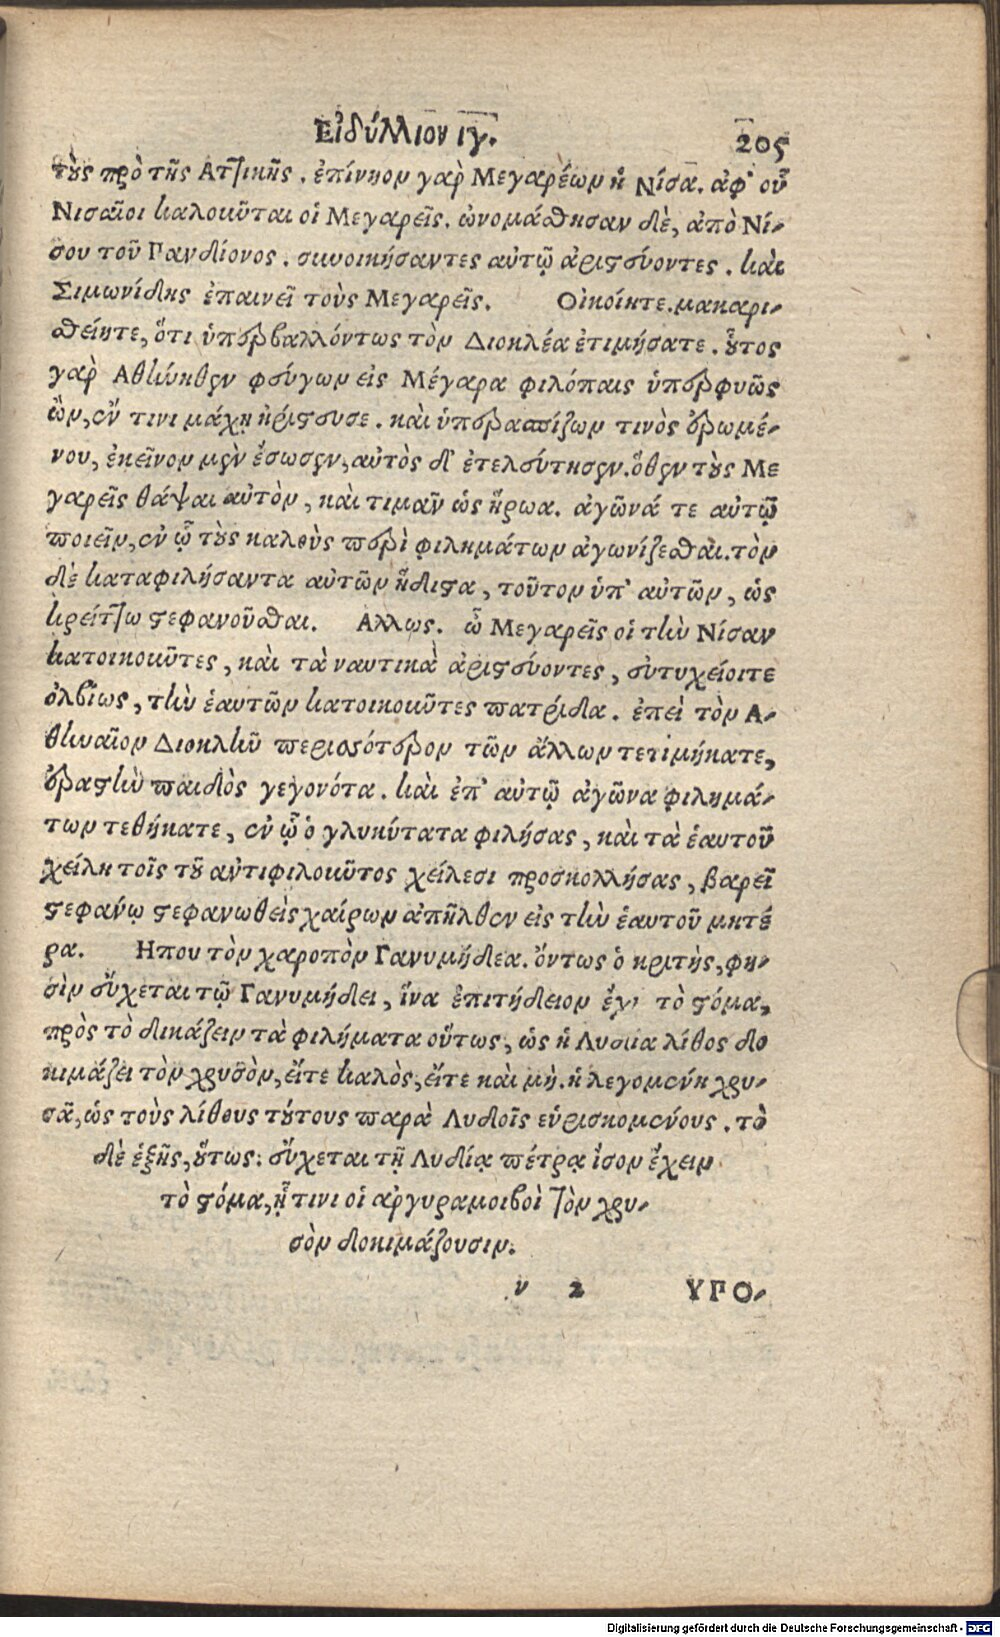 Εἰδύλλιον ιγ. 205
τοὺς πρὸ τῆς Ατἰικῆς. ἐπίνηον γὰρ Μεγαρέων ἡ Νίσα. ἀφ' οὗ
Νισαῖοι καλοῦνται οἱ Μεγαρεῖς. ὠνομάσθησαν δὲ, ἀπὸ Νί-
σου τοῦ Γανδίονος. συνοικήσαντες αὐτῷ ἀριστεύοντες. καὶ
Σιμωνίδης ἐπαινεῖ τοὺς Μεγαρεῖς. Οἰκοίητε. μακαρι-
σθείητε, ὅτι ὑπερβαλλόντως τὸν Διοκλέα ἐτιμήσατε. οὗτος
γὰρ Αθήνηθεν φεύγων εἰς Μέγαρα φιλόπαις ὑπερφυῶς
ὢν, ἔν τινι μάχῃ ἠρίστευσε. καὶ ὑπερασπίζων τινὸς ἐρωμέ-
νου, ἐκεῖνον μὲν ἔσωσεν, αὐτὸς δ' ἐτελεύτησεν. ὅθεν τοὺς Με
γαρεῖς θάψαι αὐτὸν, καὶ τιμᾶν ὡς ἥρωα. ἀγῶνά τε αὐτῷ
ποιεῖν, ἐν ᾧ τοὺς καλοὺς περὶ φιλημάτων ἀγωνίζεσθαι. τὸν
δὲ καταφιλήσαντα αὐτῶν ἥδιστα, τοῦτον ὑπ' αὐτῶν, ὡς
κρείτἰω στεφανοῦσθαι. Αλλως. ὦ Μεγαρεῖς οἱ τὴν Νίσαν
κατοικοῦντες, καὶ τὰ ναυτικὰ ἀριστεύοντες, εὐτυχείοιτε
ὀλβίως, τὴν ἑαυτῶν κατοικοῦντες πατρίδα. ἐπεὶ τὸν Α-
θηναῖον Διοκλῆν περισσότερον τῶν ἄλλων τετιμήκατε,
ἐραστὴν παιδὸς γεγονότα. καὶ ἐπ' αὐτῷ ἀγῶνα φιλημά-
των τεθήκατε, ἐν ᾧ ὁ γλυκύτατα φιλήσας, καὶ τὰ ἑαυτοῦ
χείλη τοῖς τοῦ ἀντιφιλοῦντος χείλεσι προσκολλήσας, βαρεῖ
στεφάνῳ στεφανωθεὶς χαίρων ἀπῆλθεν εἰς τὴν ἑαυτοῦ μητέ
ρα. Ηπου τὸν χαροπὸν Γανυμήδεα. ὄντως ὁ κριτὴς, φη-
σὶν εὔχεται τῷ Γανυμήδει, ἵνα ἐπιτήδειον ἔχῃ τὸ στόμα,
πρὸς τὸ δικάζειν τὰ φιλήματα οὕτως, ὡς ἡ Λυδια λίθος δο
κιμάζει τὸν χρυσὸν, εἴτε καλὸς, εἴτε καὶ μὴ. ἡ λεγομένη χρυ-
σᾶ, ὡς τοὺς λίθους τούτους παρὰ Λυδοῖς εὑρισκομένους. τὸ
δὲ ἑξῆς, οὕτως: εὔχεται τῇ Λυδίᾳ πέτρᾳ ἶσον ἔχειν
τὸ στόμα, ᾗ τινι οἱ ἀργυραμοιβοὶ τὸν χρυ-
σὸν δοκιμάζουσιν.
ν 2 ΥΓΟ-
Digitalisierung gefördert durch die Deutsche Forschungsgemeinschaft - DFG